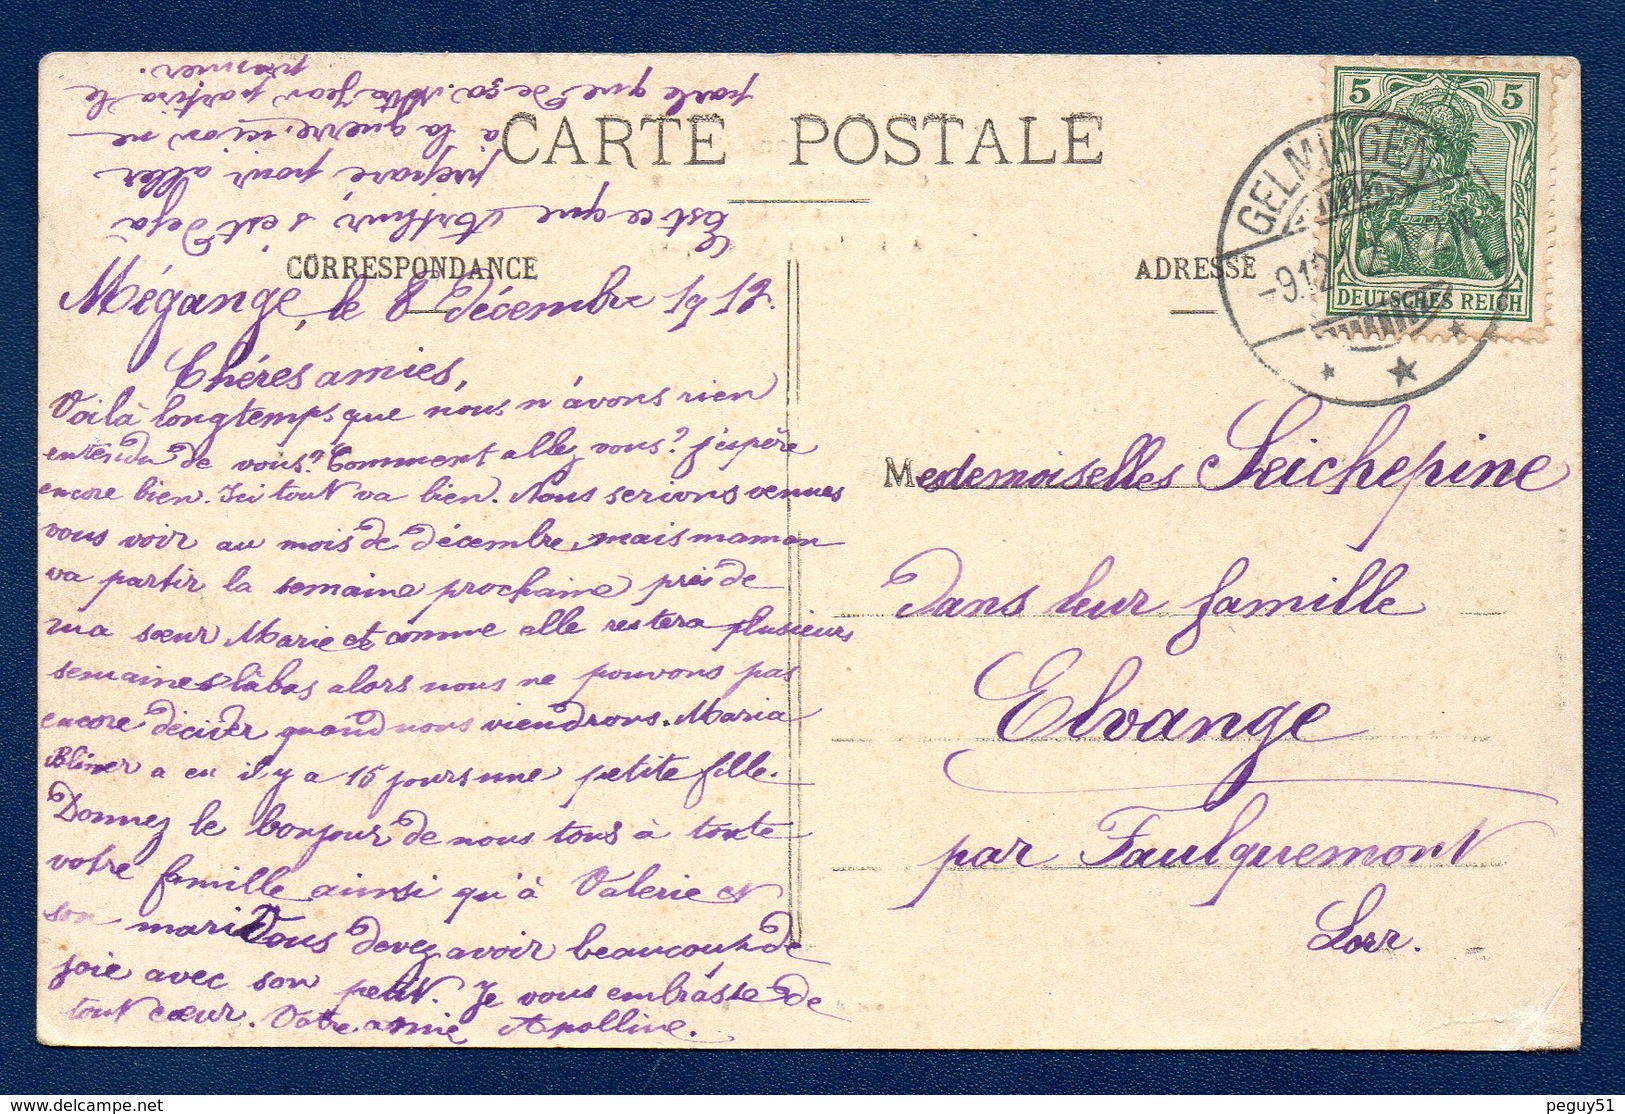 CARTE POSTALE
CORRESPONDANCE
ADRESSE
5 5
DEUTSCHES REICH
GELMINGEN
-9.12.12
Mégange, le 8 Décembre 1912.
Chéres amies,
Voilà longtemps que nous n'avons rien
entendu de vous? Comment allez vous? j'espère
encore bien. Ici tout va bien. Nous serions venues
vous voir au mois de décembre, mais maman
va partir la semaine prochaine près de
ma sœur Marie et comme elle restera plusieurs
semaines làbas alors nous ne pouvons pas
encore décider quand nous viendrons. Maria
a eu il y a 15 jours une petite fille.
Donnez le bonjour de nous tous à toute
votre famille ainsi qu'à Valerie et
son mari Vous devez avoir beaucoup de
joie avec son petit. Je vous embrasse de
tout cœur. Votre amie Apolline.
Est ce que Arthur, s'est déjà
préparé pour aller
à la guerre, ici on ne
parle que de ça. Jean partira le
premier.
Mesdemoiselles Seichepine
Dans leur famille
Elvange
par Faulquemont
Lorr.
peguy51